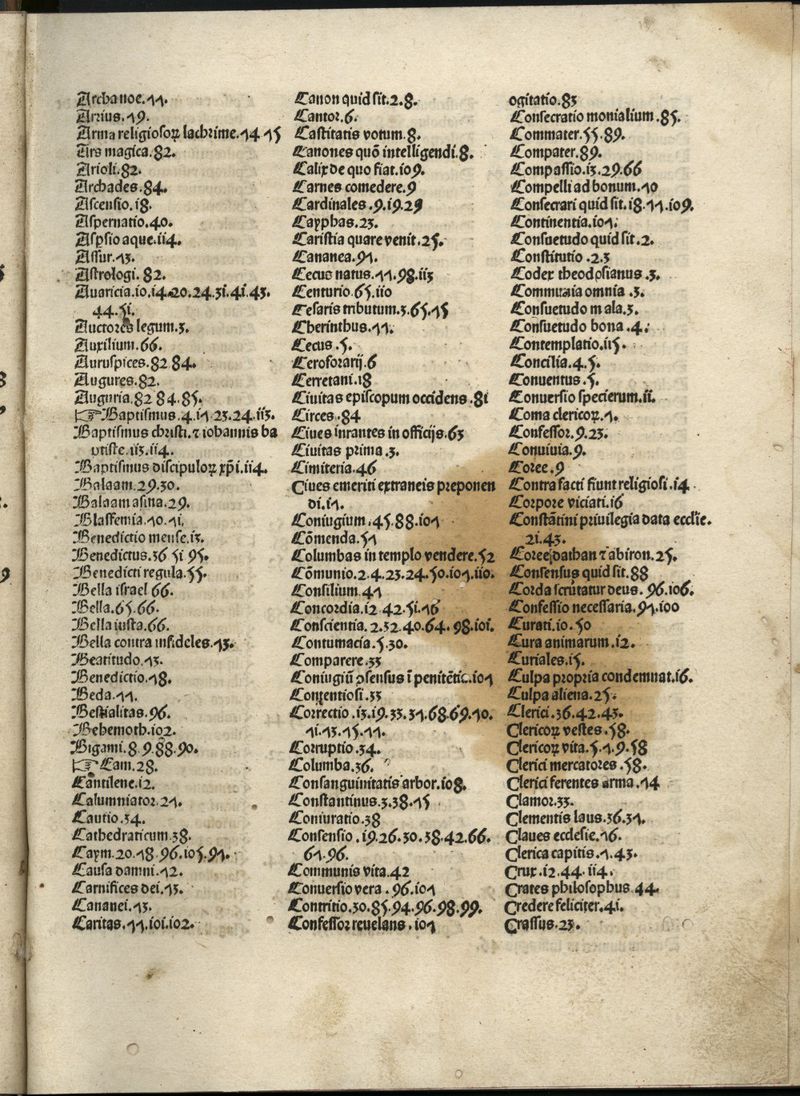 Archa noe.77.
Arrius.79.
Arma religiosoꝝ lachrime.74.75
Ars magica.82.
Arioli.82.
Archades.84.
Ascensio.i8.
Aspernatio.40.
Aspsio aque.ii4.
Assur.73.
Astrologi.82.
Auaricia.i0.i4.20.24.3i.4i.43.
44.5i.
Auctores legum.3.
Auxilium.66.
Auruspices.82 84.
Augures.82.
Auguria.82 84.85.
☞Baptismus.4.i7 23.24.ii3.
Baptismus christi.⁊ iohannis ba
ptiste.ii3.ii4.
Baptismus discipuloꝝ xp̄i.ii4.
Balaam.29.30.
Balaam asina.29.
Blasfemia.70.7i.
Benedictio mense.i3.
Benedictus.36 5i 95.
Benedicti regula.55.
Bella israel 66.
Bella.65.66.
Bella iusta.66.
Bella contra infideles.73.
Beatitudo.73.
Benedictio.78.
Beda.77.
Bestialitas.96.
Behemoth.i02.
Bigami.8.9.88.90.
☞Cam.28.
Cantilene.i2.
Calumniator.27.
Cautio.34.
Cathedraticum 38.
Caym.20.78.96.i05.97.
Causa damni.72.
Carnifices dei.73.
Cananei.73.
Caritas.77.i0i.i02.
Canon quid sit.2.8.
Cantor.6.
Castitatis votum.8.
Canones quō intelligendi.8.
Calix de quo fiat.i09.
Carnes comedere.9
Cardinales.9.i9.29
Cayphas.23.
Caristia quare venit.25.
Cananea.97.
Cecus natus.77.98.ii3
Centurio 65.ii0
Cesaris tributum.3.65.75
Cherinthus.77.
Cecus.5.
Ceroforarij.6
Cerretani.i8
Ciuitas episcopum occidens.8i
Circes.84
Ciues intrantes in officijs.63
Ciuitas prima.3.
Cimiteria.46
Ciues emeriti extraneis preponen
di.i7.
Coniugium.45.88.i07
Cōmenda.57
Columbas in templo vendere.52
Cōmunio.2.4.23.24.50.i07.ii0.
Consilium.47
Concordia.i2 42.5i.76
Conscientia.2.32.40.64.98.i0i.
Contumacia.5.30.
Comparere.33
Coniugiū ↄsensus ī penitētic.i07
Contentiosi.33
Correctio.i3.i9.33.37.68.69.70.
7i.73.75.77.
Corruptio.34.
Columba.36.
Consanguinitatis arbor.i08.
Constantinus.3.38.75
Coniuratio.38
Consensio.i9.26.30.38.42.66.
67.96.
Communis vita.42
Conuersio vera.96.i07
Contritio.30.85.94.96.98.99.
Confessor reuelans.i07
ogitatio.83
Consecratio monialium.85.
Commater.55.89.
Compater.89.
Compassio.i3.29.66
Compelli ad bonum.70
Consecrari quid sit.i8.77.i09.
Continentia.i07.
Consuetudo quid sit.2.
Constitutio.2.3
Codex theodosianus.3.
Communia omnia.3.
Consuetudo mala.3.
Consuetudo bona.4.
Contemplatio.ii5.
Concilia.4.5.
Conuentus.5.
Conuersio specierum.ii.
Coma clericoꝝ.7.
Confessor.9.23.
Conuiuia.9.
Coree.9
Contra facti fiunt religiosi.i4.
Corpore viciati.i6
Constātini priuilegia data ecclīe.
2i.43.
Coree,dathan ⁊ abiron.25.
Consensus quid sit.88
Corda scrutatur deus.96.i06.
Confessio necessaria.97.i00
Curati.i0.50
Cura animarum.i2.
Curiales.i5.
Culpa propria condemnat.i6.
Culpa aliena.25.
Clerici.36.42.43.
Clericoꝝ vestes.58.
Clericoꝝ vita.5.7.9.58
Clerici mercatores.58.
Clerici ferentes arma.74
Clamor.33.
Clementis laus.36.37.
Claues ecclesie.76.
Clerica capitis.7.43.
Crux.i2.44.ii4.
Crates philosophus 44.
Credere feliciter.4i.
Crassus.23.